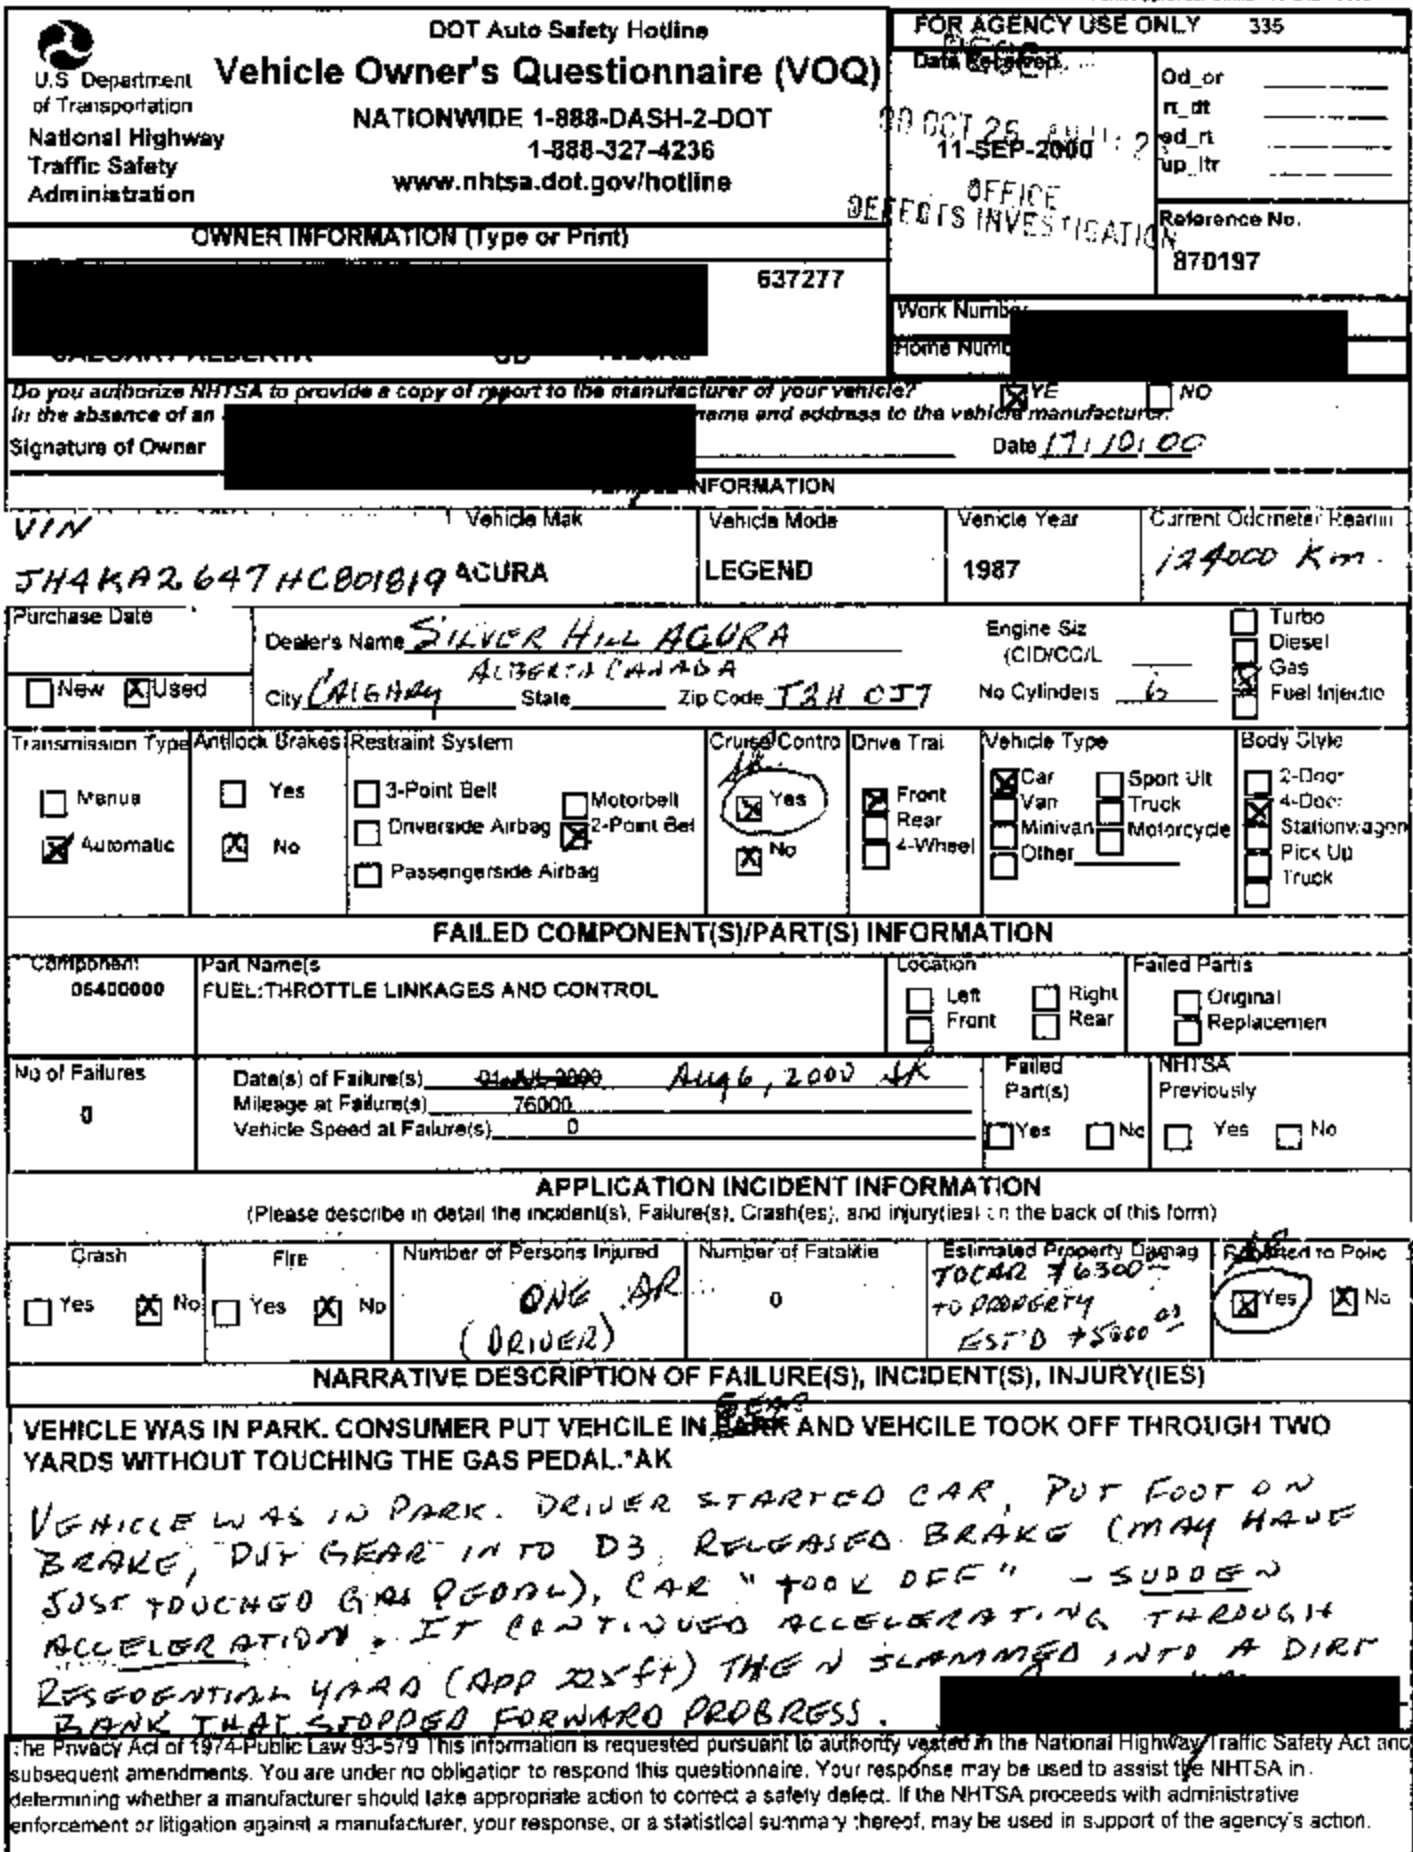 DOT Auto Safety Hotline
Vehicle Owner's Questionnaire (VOQ)
NATIONWIDE 1-888-DASH-2-DOT
1-888-327-4236
www.nhtsa.dot.gov/hotline
U.S. Department
of Transportation
National Highway
Traffic Safety
Administration
FOR AGENCY USE ONLY 335
Date Received
00 OCT 26
11-SEP-2000
OFFICE
DEFECTS INVESTIGATION
Od_or
rt_dt
ed_rt
up_ltr
Reference No.
870197
OWNER INFORMATION (Type or Print)
637277
CALGARY ALBERTA
Work Number
Home Numb
Do you authorize NHTSA to provide a copy of report to the manufacturer of your vehicle? YE NO
In the absence of an name and address to the vehicle manufacturer.
Signature of Owner Date 17/10/00
INFORMATION
VIN
JH4KA2647HC801819
Vehicle Mak
ACURA
Vehicle Mode
LEGEND
Vehicle Year
1987
Current Odometer Readin
124000 Km.
Purchase Date
New Used
Dealer's Name SILVER HILL ACURA
ALBERTA CANADA
City CALGARY State Zip Code T2H 0J7
Engine Siz
(CID/CC/L
No Cylinders 6
Turbo
Diesel
Gas
Fuel Injectio
Transmission Type
Manua
Automatic
Antilock Brakes
Yes
No
Restraint System
3-Point Belt
Driverside Airbag
Passengerside Airbag
Motorbelt
2-Point Bel
Cruise Contro
Yes
No
Drive Trai
Front
Rear
4-Wheel
Vehicle Type
Car
Van
Minivan
Other
Sport Ult
Truck
Motorcycle
Body Style
2-Door
4-Door
Stationwagon
Pick Up
Truck
FAILED COMPONENT(S)/PART(S) INFORMATION
Component
06400000
Part Name(s
FUEL:THROTTLE LINKAGES AND CONTROL
Location
Left Right
Front Rear
Failed Part(s
Original
Replacemen
No of Failures
0
Date(s) of Failure(s) 01-JUL-2000 Aug 6, 2000 AR
Mileage at Failure(s) 76000
Vehicle Speed at Failure(s) 0
Failed
Part(s)
Yes No
NHTSA
Previously
Yes No
APPLICATION INCIDENT INFORMATION
(Please describe in detail the incident(s), Failure(s), Crash(es), and injury(ies) on the back of this form)
Crash
Yes No
Fire
Yes No
Number of Persons Injured
ONE AR
(DRIVER)
Number of Fatalitie
0
Estimated Property Damag
TO CAR $6300
TO PROPERTY
EST'D $5000 00
Reported to Polic
Yes No
NARRATIVE DESCRIPTION OF FAILURE(S), INCIDENT(S), INJURY(IES)
GEAR
VEHICLE WAS IN PARK. CONSUMER PUT VEHCILE IN PARK AND VEHCILE TOOK OFF THROUGH TWO
YARDS WITHOUT TOUCHING THE GAS PEDAL.*AK
VEHICLE WAS IN PARK. DRIVER STARTED CAR, PUT FOOT ON
BRAKE, PUT GEAR INTO D3, RELEASED BRAKE (MAY HAVE
JUST TOUCHED GAS PEDAL), CAR "TOOK OFF" - SUDDEN
ACCELERATION. IT CONTINUED ACCELERATING THROUGH
RESEDENTIAL YARD (APP 225 ft) THEN SLAMMED INTO A DIRT
BANK THAT STOPPED FORWARD PROGRESS.
The Privacy Act of 1974-Public Law 93-579 This information is requested pursuant to authority vested in the National Highway Traffic Safety Act and
subsequent amendments. You are under no obligation to respond this questionnaire. Your response may be used to assist the NHTSA in
determining whether a manufacturer should take appropriate action to correct a safety defect. If the NHTSA proceeds with administrative
enforcement or litigation against a manufacturer, your response, or a statistical summary thereof, may be used in support of the agency's action.